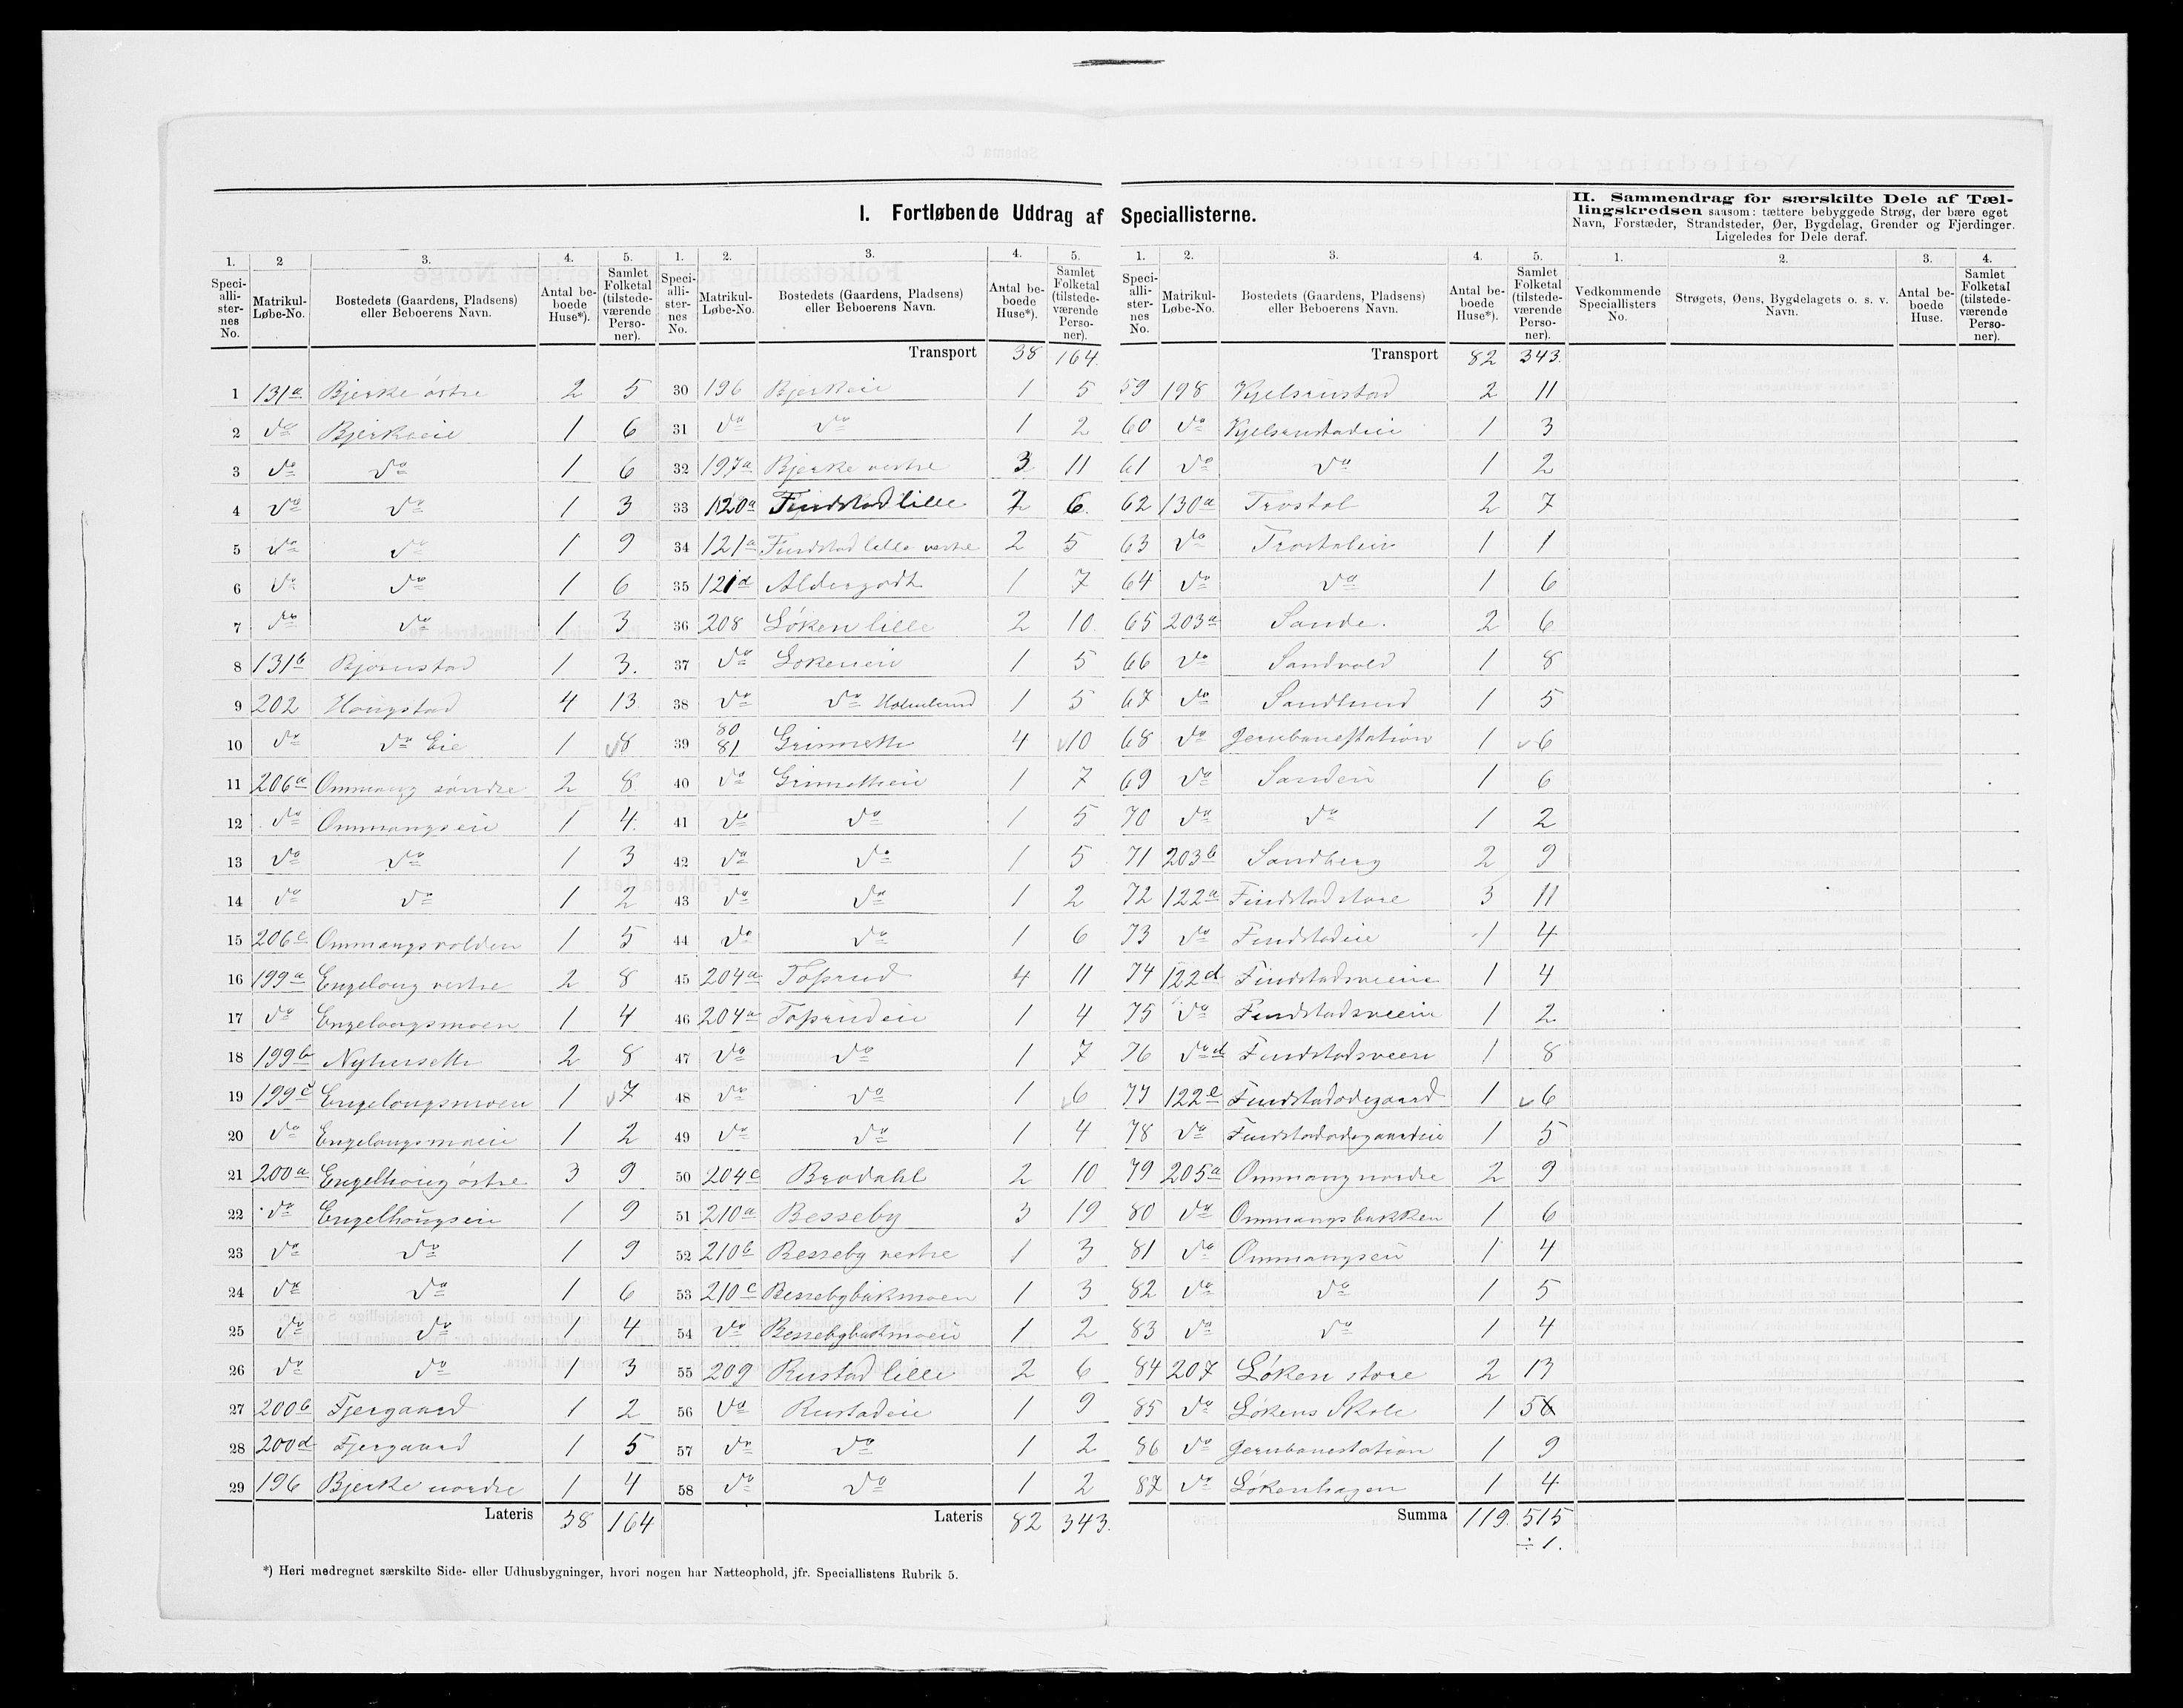 I. Fortløbende Uddrag af Speciallisterne.
II. Sammendrag for særskilte Dele af Tæl-
lingskredsen saasom: tættere bebyggede Strøg, der bære eget
Navn, Forstæder, Strandsteder, Øer, Bygdelag, Grender og Fjerdinger.
Ligeledes for Dele deraf.
1. 2 3. 4. 5.
Speciallisternes No. Matrikul-Løbe-No. Bostedets (Gaardens, Pladsens) eller Beboerens Navn. Antal beboede Huse*). Samlet Folketal (tilstedeværende Personer).
1 131a Bjerke østre 2 5
2 do Bjerkeeie 1 6
3 do do 1 6
4 do do 1 3
5 do do 1 9
6 do do 1 6
7 do do 1 3
8 131b Bjørnstad 1 3.
9 202 Hougstad 4 13
10 do do Eie 1 8
11 206a Ommang søndre 2 8
12 do Ommangseie 1 4.
13 do do 1 3
14 do do 1 2
15 206c Ommangsvolden 1 5
16 199a Engelaug vestre 2 8
17 do Engelaugsmoen 1 4
18 199b Nyhusseth 2 8
19 199c Engelaugsmoen 1 7
20 do Engelaugsmoeie 1 2
21 200a Engelhoug østre 3 9
22 do Engelhougseie 1 9
23 do do 1 9
24 do do 1 6
25 do do 1 4
26 do do 1 3
27 200b Fjergaard 1 2
28 200d Fjergaard 1 5
29 196 Bjerke nordre 1 4
Lateris 38 164
1. 2. 3. 4. 5.
Speciallisternes No. Matrikul-Løbe-No. Bostedets (Gaardens, Pladsens) eller Beboerens Navn. Antal beboede Huse*). Samlet Folketal (tilstedeværende Personer).
Transport 38 164.
30 196 Bjerkeie 1 5
31 do do 1 2
32 197a Bjerke vestre 3 11
33 120a Findstad lille 2 6.
34 121a Findstad lille vestre 2 5
35 121d Aldergodt 1 7
36 208 Løken lille 2 10.
37 do Løkeneie 1 5
38 do do Holmlund 1 5
39 80 81 Grimseth 4 10
40 do Grimsetheie 1 7
41 do do 1 5
42 do do 1 5
43 do do 1 2
44 do do 1 6
45 204a Toprud 4 11
46 204a Toprudeie 1 4
47 do do 1 7
48 do do 1 6
49 do do 1 4
50 204c Brodahl 2 10
51 210a Besseby 3 19
52 210b Besseby vestre 1 3
53 210c Bessebybakmoen 1 3
54 do Bessebybakmoeie 1 2
55 209 Rustad lille 2 6
56 do Rustadeie 1 9
57 do do 1 2
58 do do 1 2
Lateris 82 343.
1. 2. 3. 4. 5.
Speciallisternes No. Matrikul-Løbe-No. Bostedets (Gaardens, Pladsens) eller Beboerens Navn. Antal beboede Huse*). Samlet Folketal (tilstedeværende Personer).
Transport 82 343.
59 198 Kjelsrustad 2 11
60 do Kjelsrustadeie 1 3
61 do do 1 2
62 130a Trostol 2 7
63 do Trostoleie 1 1
64 do do 1 6
65 203a Sande. 2 6
66 do Sandvold 1 8
67 do Sandlund 1 5
68 do Jernbanestation 1 6
69 do Sandeie 1 6
70 do do 1 2
71 203b Sandberg 2 9
72 122a Findstad store 3 11
73 do Findstadeie 1 4
74 122d Findstadsveeie 1 4
75 do Findstadsveeie 1 2
76 do d Findstadsveen 1 8
77 122e Findstadødegaard 1 6
78 do Findstadødegaardeie 1 5
79 205a Ommang nordre 2 9
80 do Ommangsbakken 1 6
81 do Ommangseie 1 4
82 do do 1 5
83 do do 1 4
84 207 Løken store 2 13
85 do Løkens Skole 1 56
86 do Jernbanestation 1 9
87 do Løkenhagen 1 4
Summa 119. 515
÷ 1.
1. 2. 3. 4.
Vedkommende Speciallisters No. Strøgets, Øens, Bygdelagets o. s. v. Navn. Antal beboede Huse. Samlet Folketal (tilstedeværende Personer).
*) Heri medregnet særskilte Side- eller Udhusbygninger, hvori nogen har Natteophold, jfr. Speciallistens Rubrik 5.